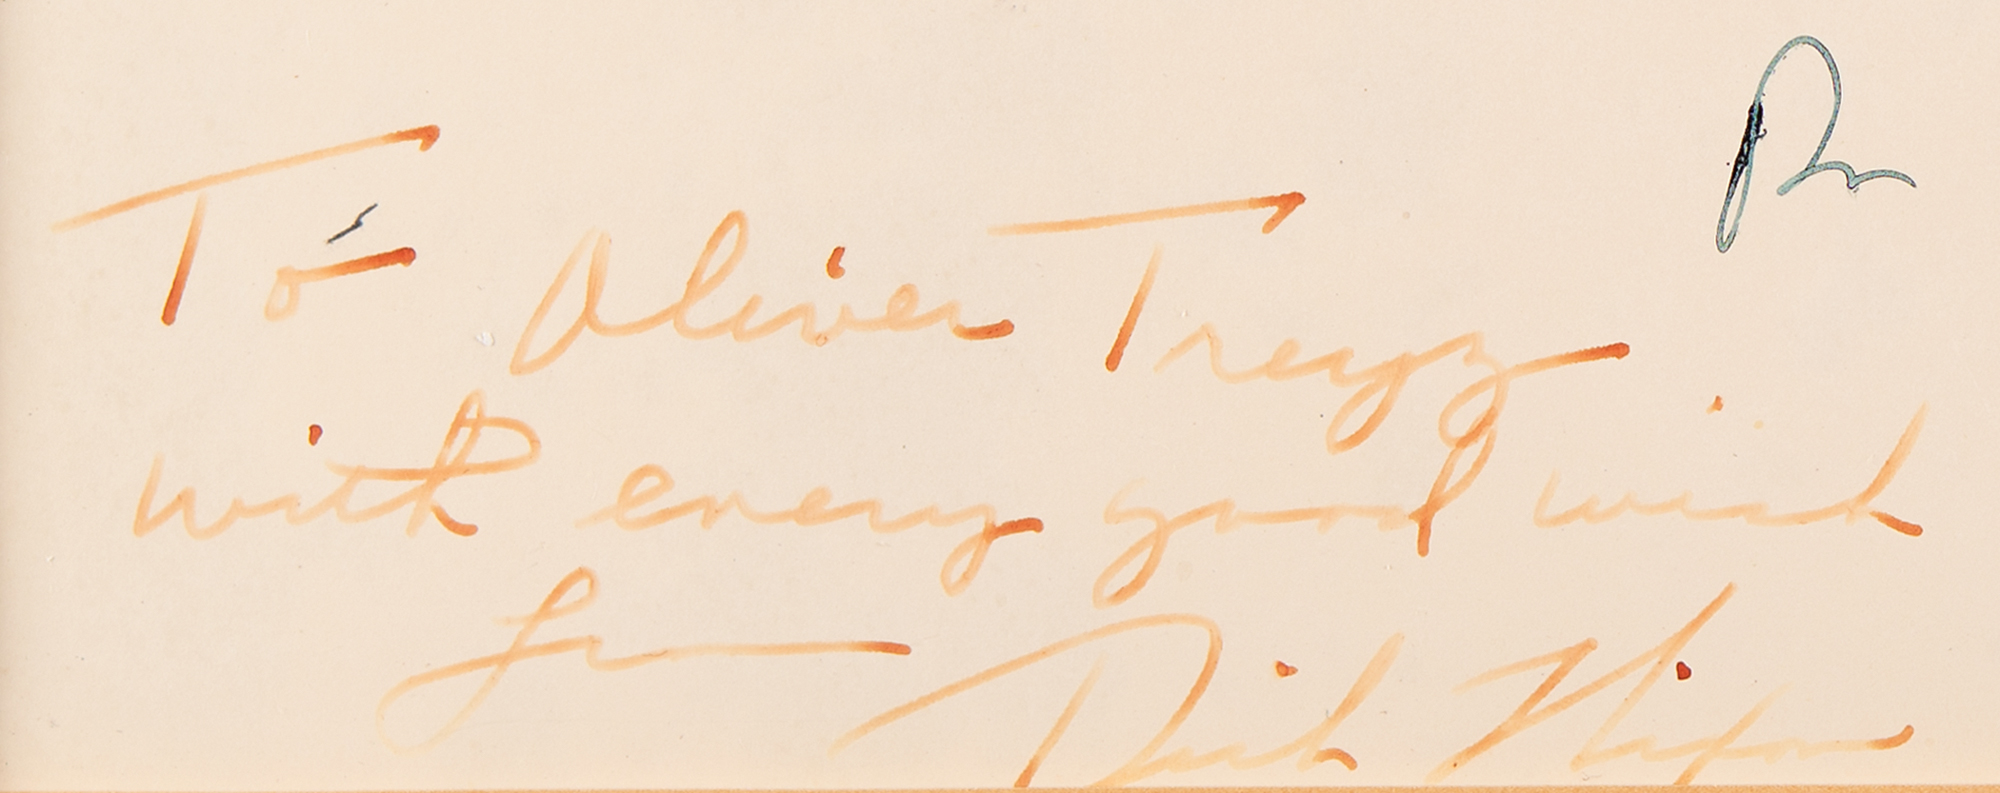 To Oliver Treyz
with every good wish
from Dick Nixon